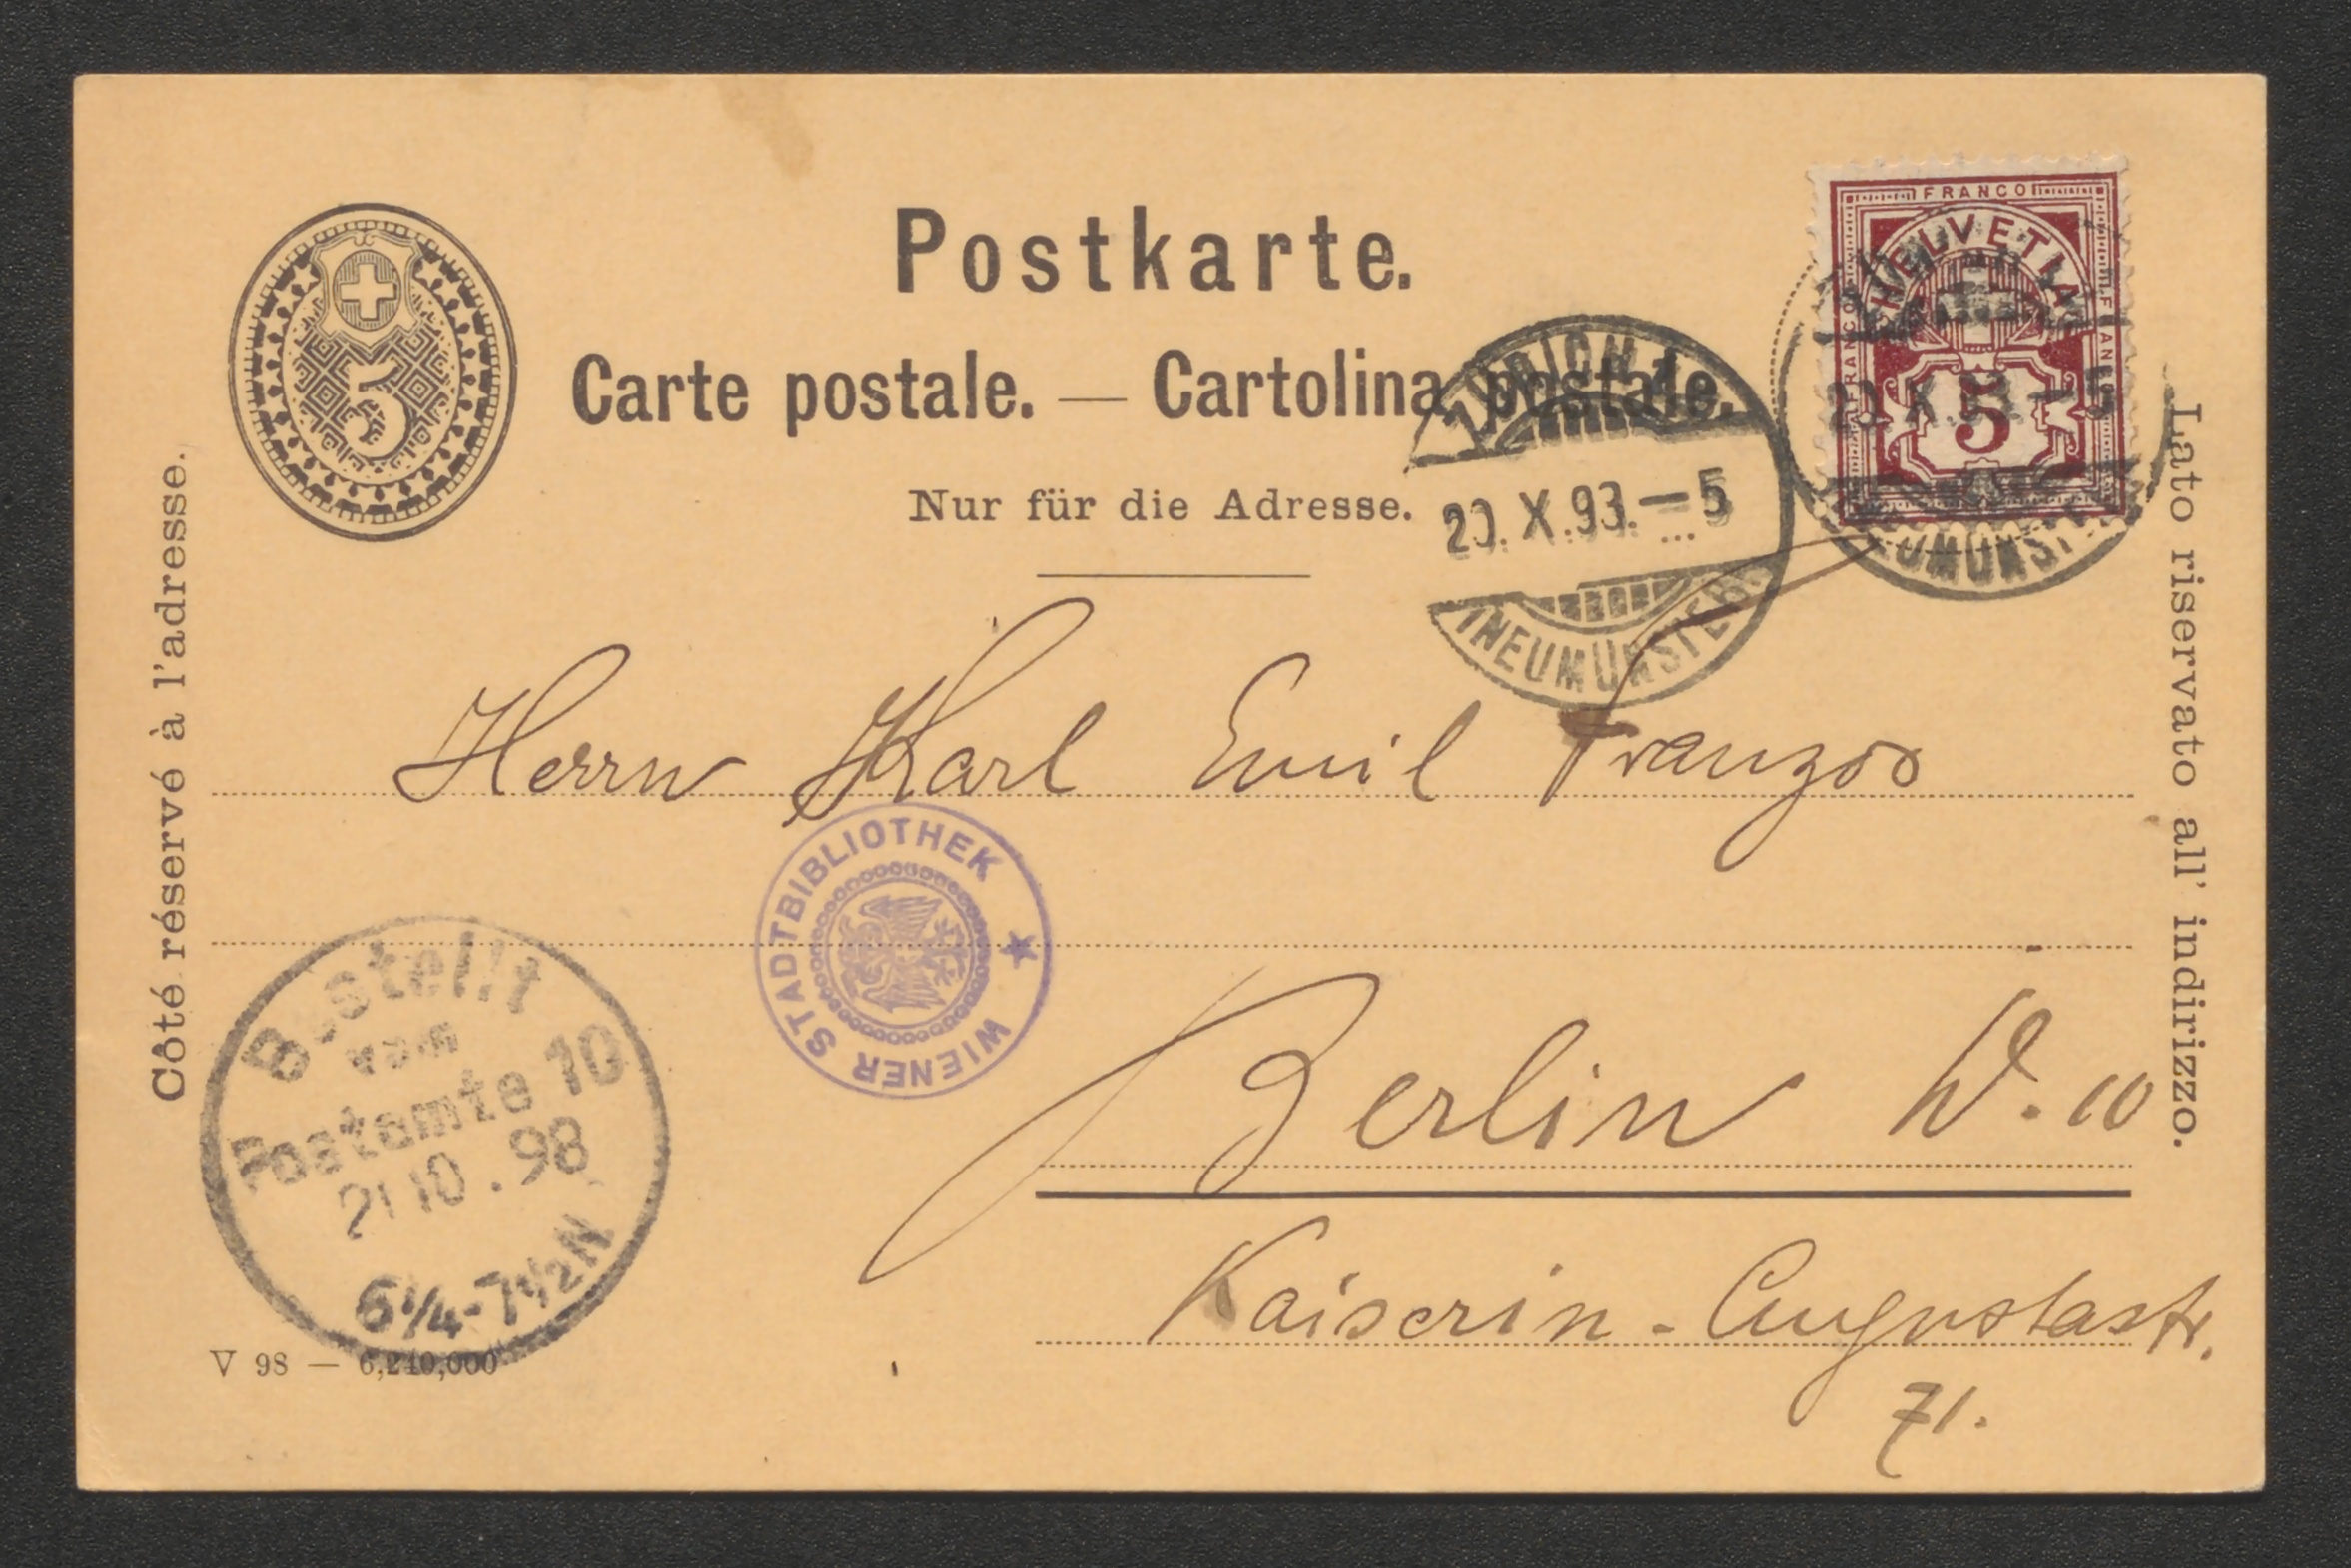 Postkarte.
Carte postale. — Cartolina postale.
Nur für die Adresse.
5
FRANCO
HELVETIA
FRANCO
5
ZÜRICH
20. X. 98. — 5
(NEUMÜNSTER)
20. X. 98. — 5
NEUMÜNST
Côté réservé à l'adresse.
Lato riservato all' indirizzo.
Herrn Karl Emil Franzos
WIENER STADTBIBLIOTHEK
Berlin W. 10
Kaiserin-Augustastr.
71.
Bestellt
vom
Postamte 10
21 10. 98
6¼-7½N
V 98 — 6,240,000